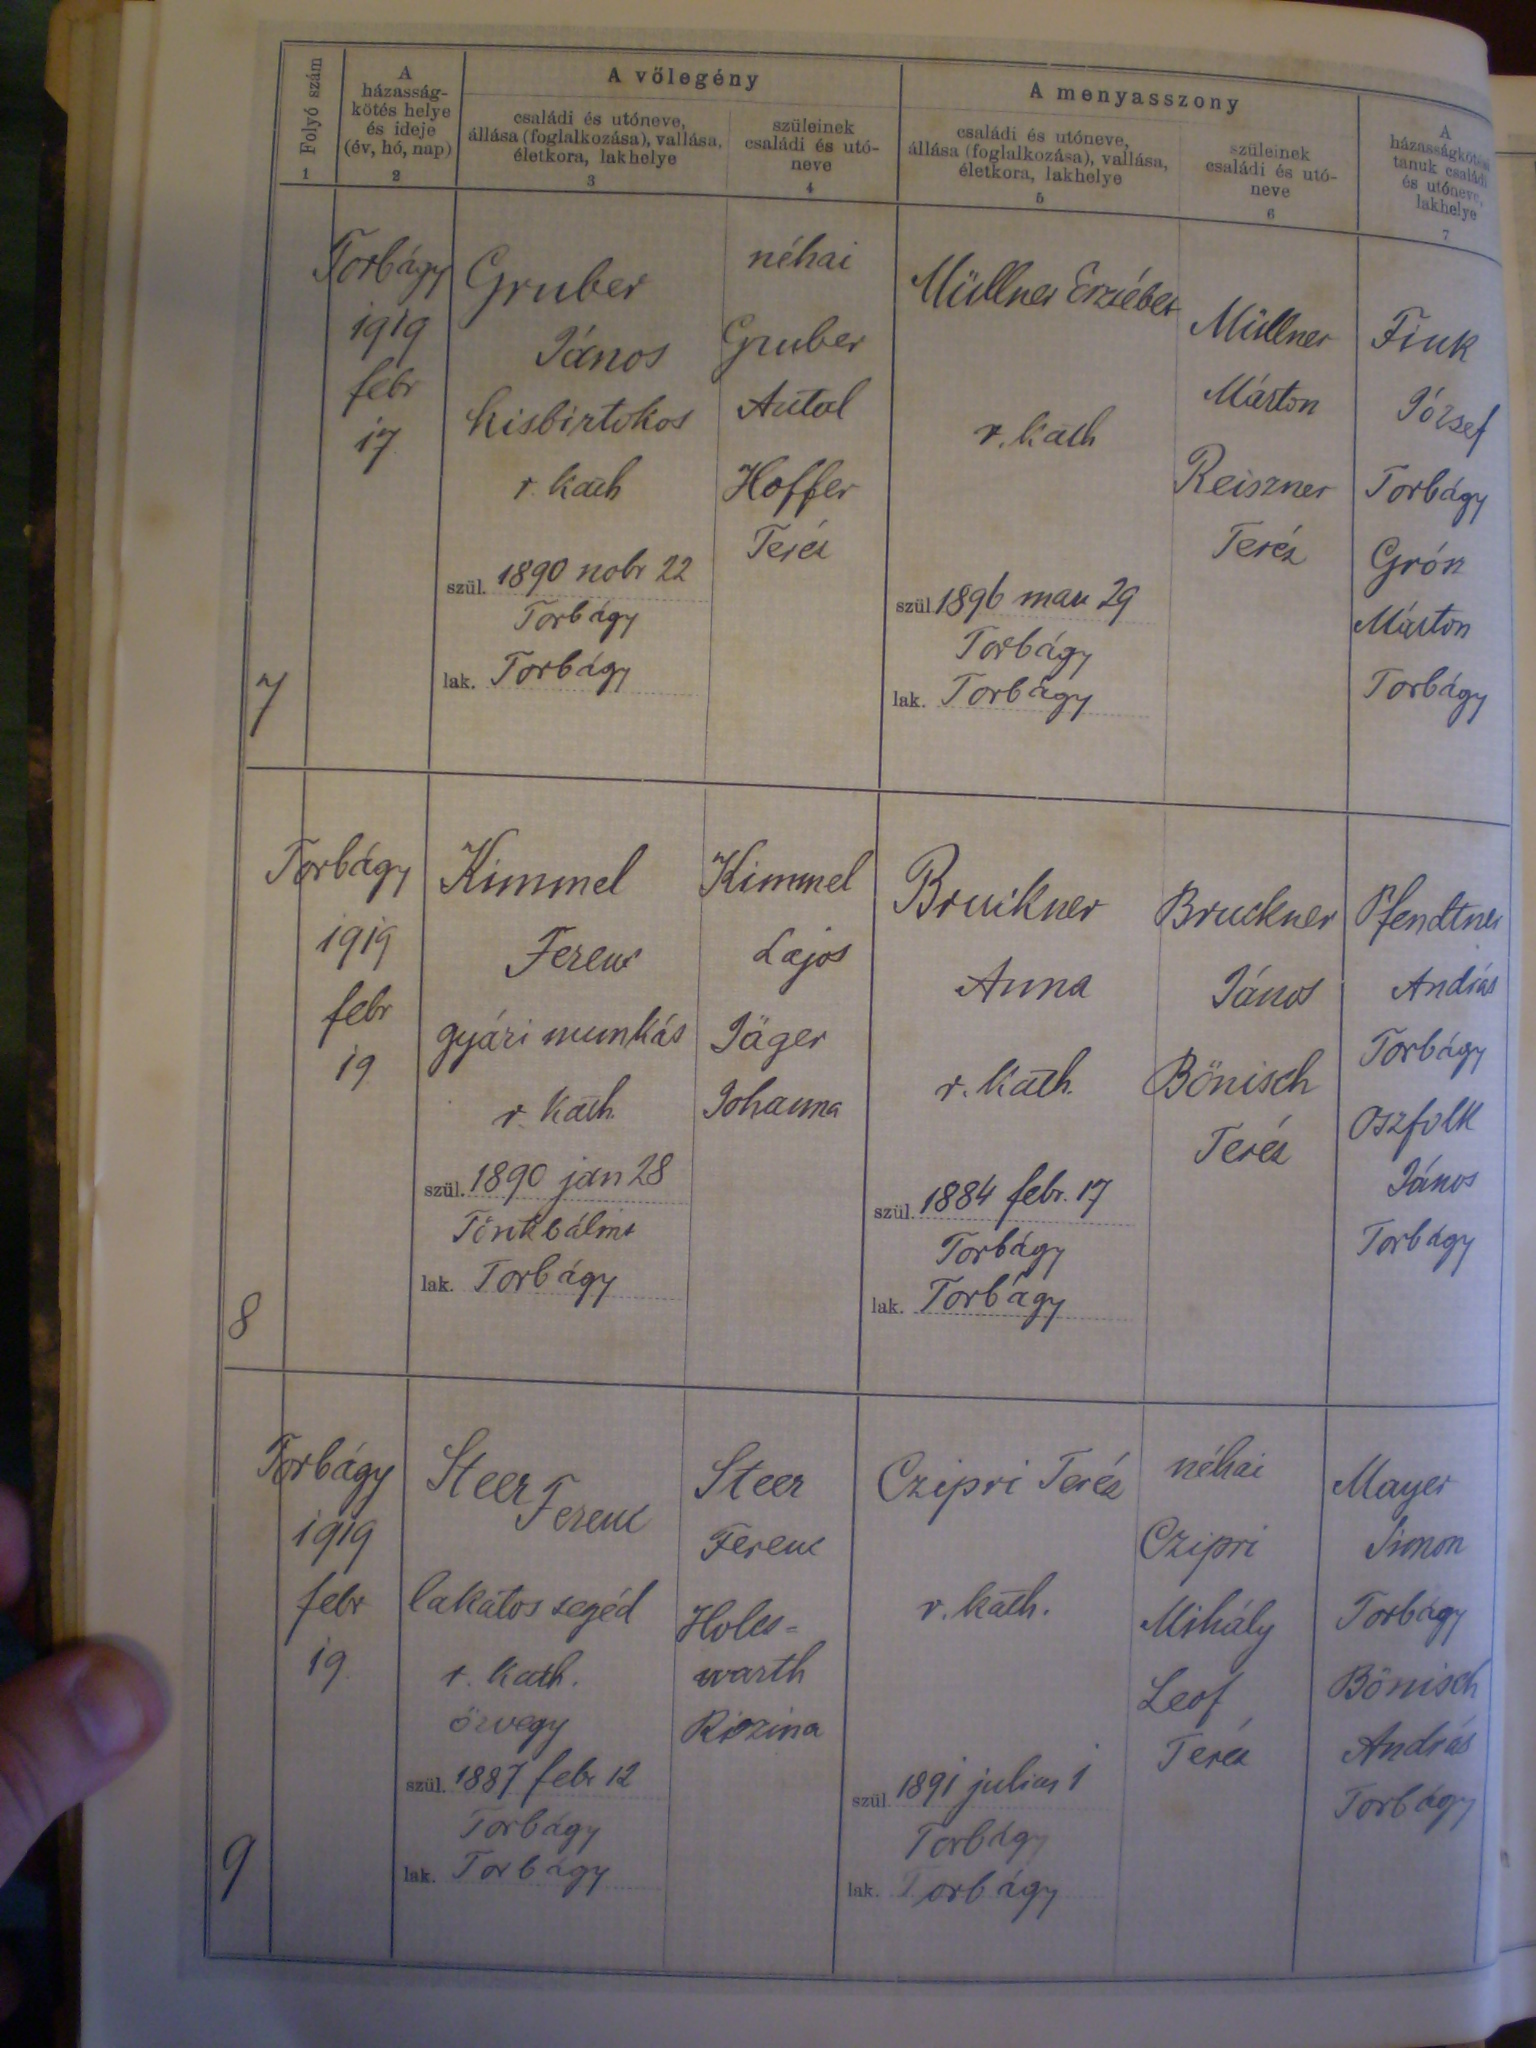 Folyó szám
1
A
házasság-
kötés helye
és ideje
(év, hó, nap)
2
A vőlegény
családi és utóneve,
állása (foglalkozása), vallása,
életkora, lakhelye
3
szüleinek
családi és utó-
neve
4
A menyasszony
családi és utóneve,
állása (foglalkozása), vallása,
életkora, lakhelye
5
szüleinek
családi és utó-
neve
6
A
tanuk családi
és utóneve,
lakhelye
7
7
Torbágy
1919
febr
17.
Gruber
János
kisbirtokos
r. kath
szül. 1890 nobr 22
Torbágy
lak. Torbágy
néhai
Gruber
Antal
Hoffer
Teréz
Müllner Erzsébet
r. kath
szül. 1896 mar 29
Torbágy
lak. Torbágy
Müllner
Márton
Reiszner
Teréz
Fink
József
Torbágy
Grósz
Márton
Torbágy
8
Torbágy
1919
febr
19
Kimmel
Ferenc
gyári munkás
r. kath.
szül. 1890 jan 28
lak. Torbágy
Kimmel
Lajos
Jäger
Johanna
Bruckner
Anna
r. kath.
szül. 1884 febr. 17
Torbágy
lak. Torbágy
Bruckner
János
Bönisch
Teréz
Pfendtner
András
Torbágy
Oszfolk
János
Torbágy
9
Torbágy
1919
febr
19.
Steer
Ferenc
lakatos segéd
r. kath.
özvegy
szül. 1887 febr 12
Torbágy
lak. Torbágy
Steer
Ferenc
warth
Rozina
Czipri Teréz
r. kath.
szül. 1891 julius 1
Torbágy
lak. Torbágy
néhai
Czipri
Mihály
Leof
Teréz
Mayer
Simon
Torbágy
Bönisch
András
Torbágy